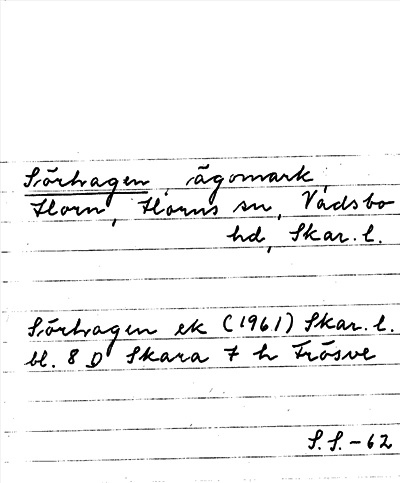 Sörhagen, ägomark,
Horn, Horns sn, Vadsbo
hd, Skar. l.
Sörhagen ek (1961) Skar. l.
bl. 8 D Skara 7 h Frösve
S.S.-62